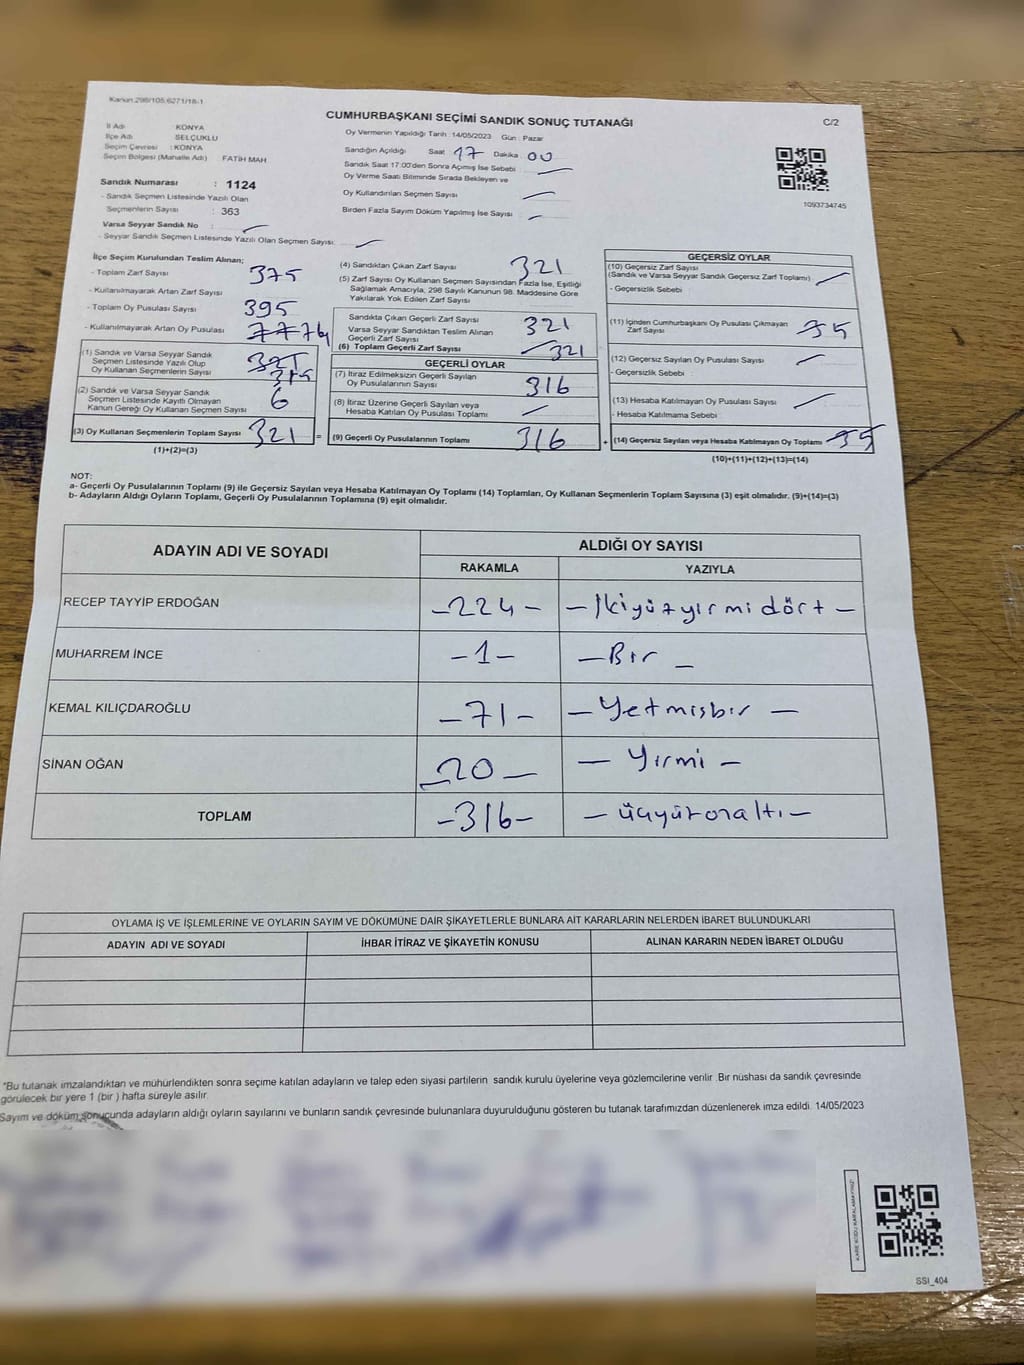 Kanun:298/105,6271/18-1
CUMHURBAŞKANI SEÇİMİ SANDIK SONUÇ TUTANAĞI
C/2
İl Adı KONYA
İlçe Adı SELÇUKLU
Seçim Çevresi : KONYA
Seçim Bölgesi (Mahalle Adı) FATİH MAH
Sandık Numarası : 1124
- Sandık Seçmen Listesinde Yazılı Olan
Seçmenlerin Sayısı : 363
Varsa Seyyar Sandık No :
- Seyyar Sandık Seçmen Listesinde Yazılı Olan Seçmen Sayısı:
Oy Vermenin Yapıldığı Tarih :14/05/2023 Gün : Pazar
Sandığın Açıldığı Saat 17 Dakika 00
Sandık Saat 17:00'den Sonra Açımış İse Sebebi
Oy Verme Saati Bitiminde Sırada Bekleyen ve
Oy Kullandırılan Seçmen Sayısı
Birden Fazla Sayım Döküm Yapılmış İse Sayısı
1093734745
İlçe Seçim Kurulundan Teslim Alınan;
- Toplam Zarf Sayısı 375
- Kullanılmayarak Artan Zarf Sayısı
- Toplam Oy Pusulası Sayısı 395
- Kullanılmayarak Artan Oy Pusulası 74
(1) Sandık ve Varsa Seyyar Sandık
Seçmen Listesinde Yazılı Olup
Oy Kullanan Seçmenlerin Sayısı 321 315
(2) Sandık ve Varsa Seyyar Sandık
Seçmen Listesinde Kayıtlı Olmayan
Kanun Gereği Oy Kullanan Seçmen Sayısı 6
(3) Oy Kullanan Seçmenlerin Toplam Sayısı 321 =
(1)+(2)=(3)
(4) Sandıktan Çıkan Zarf Sayısı 321
(5) Zarf Sayısı Oy Kullanan Seçmen Sayısından Fazla İse, Eşitliği
Sağlamak Amacıyla, 298 Sayılı Kanunun 98. Maddesine Göre
Yakılarak Yok Edilen Zarf Sayısı
Sandıkta Çıkan Geçerli Zarf Sayısı 321
Varsa Seyyar Sandıktan Teslim Alınan
Geçerli Zarf Sayısı
(6) Toplam Geçerli Zarf Sayısı 321
GEÇERLİ OYLAR
(7) İtiraz Edilmeksizin Geçerli Sayılan
Oy Pusulalarının Sayısı 316
(8) İtiraz Üzerine Geçerli Sayılan veya
Hesaba Katılan Oy Pusulası Toplamı
(9) Geçerli Oy Pusulalarının Toplamı 316 +
GEÇERSİZ OYLAR
(10) Geçersiz Zarf Sayısı
(Sandık ve Varsa Seyyar Sandık Geçersiz Zarf Toplamı)
- Geçersizlik Sebebi :
(11) İçinden Cumhurbaşkanı Oy Pusulası Çıkmayan
Zarf Sayısı
(12) Geçersiz Sayılan Oy Pusulası Sayısı
- Geçersizlik Sebebi :
(13) Hesaba Katılmayan Oy Pusulası Sayısı
- Hesaba Katılmama Sebebi :
(14) Geçersiz Sayılan veya Hesaba Katılmayan Oy Toplamı
(10)+(11)+(12)+(13)=(14)
NOT:
a- Geçerli Oy Pusulalarının Toplamı (9) ile Geçersiz Sayılan veya Hesaba Katılmayan Oy Toplamı (14) Toplamları, Oy Kullanan Seçmenlerin Toplam Sayısına (3) eşit olmalıdır. (9)+(14)=(3)
b- Adayların Aldığı Oyların Toplamı, Geçerli Oy Pusulalarının Toplamına (9) eşit olmalıdır.
ADAYIN ADI VE SOYADI
ALDIĞI OY SAYISI
RAKAMLA YAZIYLA
RECEP TAYYİP ERDOĞAN -224- -İkiyüzyirmidört-
MUHARREM İNCE -1- -Bir-
KEMAL KILIÇDAROĞLU -71- -Yetmişbir-
SİNAN OĞAN -20- -Yirmi-
TOPLAM -316- -üçyüzonaltı-
OYLAMA İŞ VE İŞLEMLERİNE VE OYLARIN SAYIM VE DÖKÜMÜNE DAİR ŞİKAYETLERLE BUNLARA AİT KARARLARIN NELERDEN İBARET BULUNDUKLARI
ADAYIN ADI VE SOYADI İHBAR İTİRAZ VE ŞİKAYETİN KONUSU ALINAN KARARIN NEDEN İBARET OLDUĞU
*Bu tutanak imzalandıktan ve mühürlendikten sonra seçime katılan adayların ve talep eden siyasi partilerin sandık kurulu üyelerine veya gözlemcilerine verilir .Bir nüshası da sandık çevresinde
görülecek bir yere 1 (bir ) hafta süreyle asılır.
Sayım ve döküm sonucunda adayların aldığı oyların sayılarını ve bunların sandık çevresinde bulunanlara duyurulduğunu gösteren bu tutanak tarafımızdan düzenlenerek imza edildi. 14/05/2023
KARE KODU KARALAMAYINIZ!
SSI_404